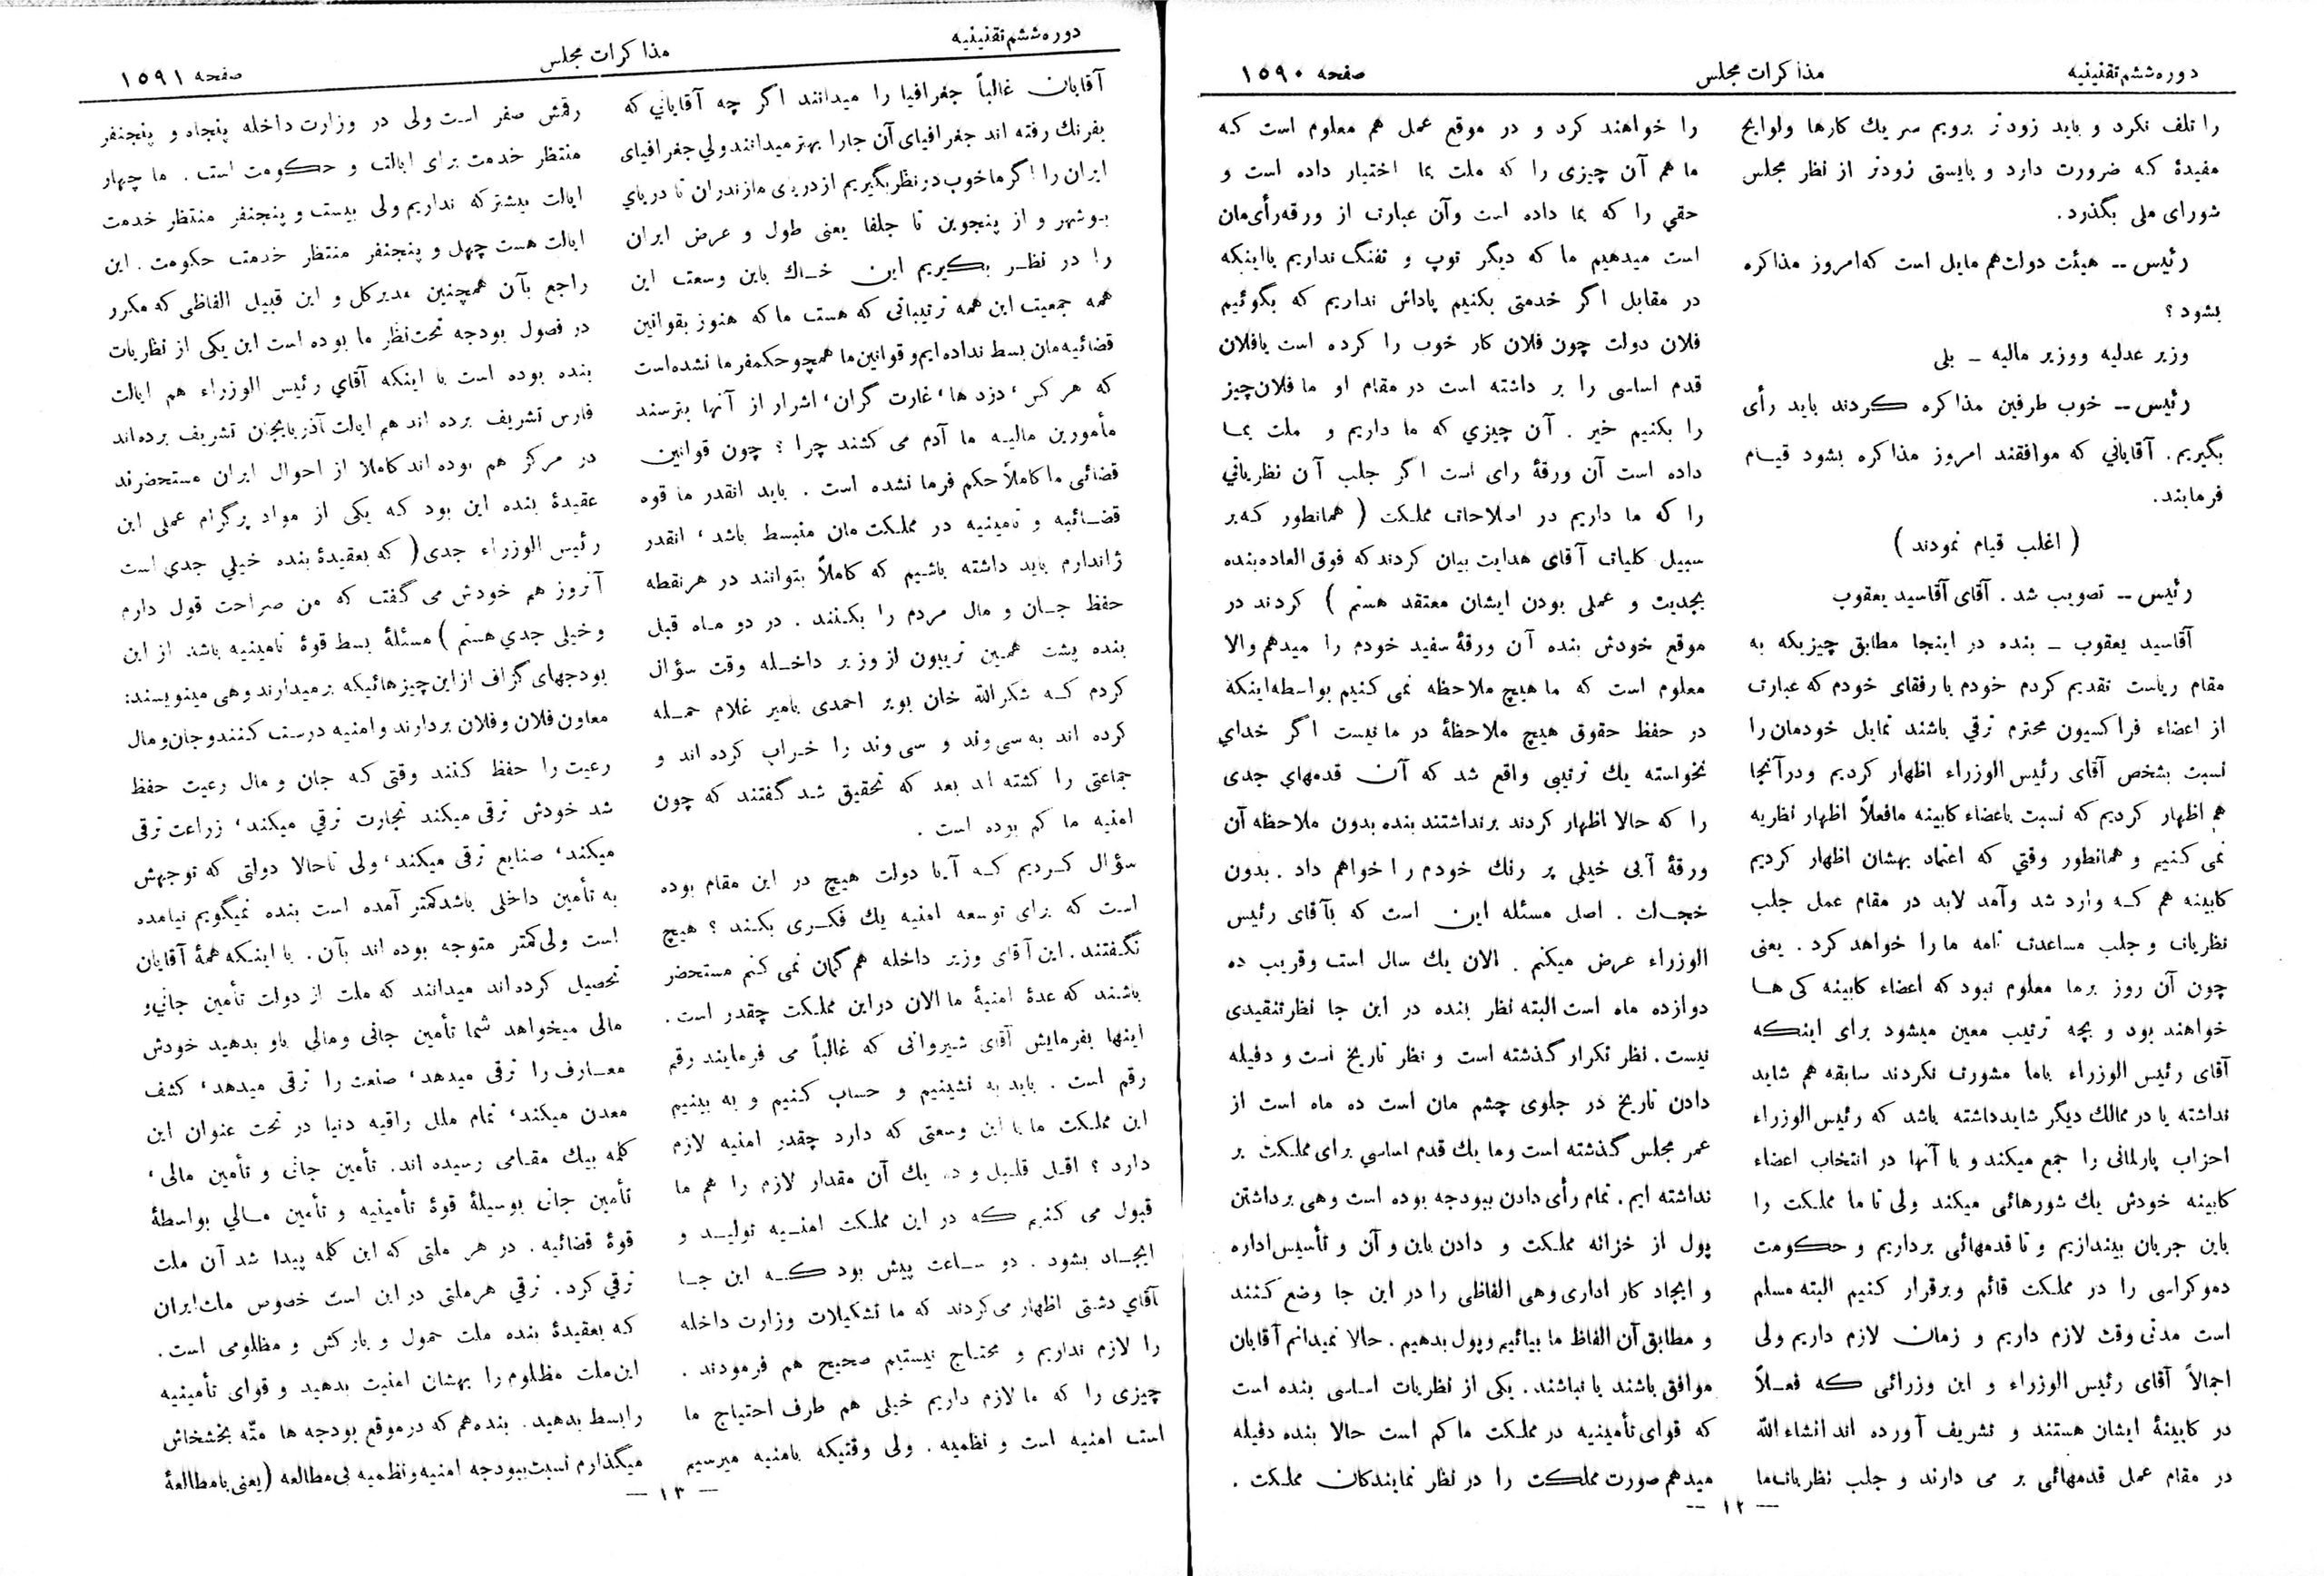 دوره ششم تقنینیه
مذاکرات مجلس
صفحه ۱۵۹۰
را تلف نکرد و باید زودتر برویم سر یك کارها ولوایح
مفیدهٔ که ضرورت دارد و بایستی زودتر از نظر مجلس
شورای ملی بگذرد.
رئیس -- هیئت دولت هم مایل است که امروز مذاکره
بشود ؟
وزیر عدلیه ووزیر مالیه - بلی
رئیس -- خوب طرفین مذاکره کردند باید رأی
بگیریم. آقایانی که موافقند امروز مذاکره بشود قیام
فرمایند.
( اغلب قیام نمودند )
رئیس -- تصویب شد . آقای آقاسید یعقوب
آقاسید یعقوب - بنده در اینجا مطابق چیزیکه به
مقام ریاست تقدیم کردم خودم با رفقای خودم که عبارت
از اعضاء فراکسیون محترم ترقی باشند تمایل خودمان را
نسبت بشخص آقای رئیس الوزراء اظهار کردیم ودرآنجا
هم اظهار کردیم که نسبت باعضاء کابینه مافعلاً اظهار نظریه
نمی کنیم و همانطور وقتی که اعتماد بهشان اظهار کردیم
کابینه هم که وارد شد وآمد لابد در مقام عمل جلب
نظریات و جلب مساعدت تامه ما را خواهد کرد . یعنی
چون آن روز برما معلوم نبود که اعضاء کابینه کی ها
خواهند بود و بچه ترتیب معین میشود برای اینکه
آقای رئیس الوزراء باما مشورت نکردند سابقه هم شاید
نداشته یا در ممالك دیگر شاید داشته باشد که رئیس الوزراء
احزاب پارلمانی را جمع میکند و با آنها در انتخاب اعضاء
کابینه خودش یك شورهائی میکند ولی تا ما مملکت را
باین جریان بیندازیم و تا قدمهائی برداریم و حکومت
دموکراسی را در مملکت قائم وبرقرار کنیم البته مسلم
است مدتی وقت لازم داریم و زمان لازم داریم ولی
اجمالاً آقای رئیس الوزراء و این وزرائی که فعلاً
در کابینهٔ ایشان هستند و تشریف آورده اند انشاءالله
در مقام عمل قدمهائی بر می دارند و جلب نظریات ما
را خواهند کرد و در موقع عمل هم معلوم است که
ما هم آن چیزی را که ملت بما اختیار داده است و
حقی را که بما داده است وآن عبارت از ورقه رأی مان
است میدهیم ما که دیگر توپ و تفنگ نداریم یا اینکه
در مقابل اگر خدمتی بکنیم پاداش نداریم که بگوئیم
فلان دولت چون فلان کار خوب را کرده است یافلان
قدم اساسی را بر داشته است در مقام او ما فلان چیز
را بکنیم خیر . آن چیزی که ما داریم و ملت بما
داده است آن ورقهٔ رای است اگر جلب آن نظریاتی
را که ما داریم در اصلاحات مملکت ( همانطور که بر
سبیل کلیات آقای هدایت بیان کردند که فوق العاده بنده
بجدیت و عملی بودن ایشان معتقد هستم ) کردند در
موقع خودش بنده آن ورقهٔ سفید خودم را میدهم والا
معلوم است که ما هیچ ملاحظه نمی کنیم بواسطه اینکه
در حفظ حقوق هیچ ملاحظهٔ در ما نیست اگر خدای
نخواسته یك ترتیبی واقع شد که آن قدمهای جدی
را که حالا اظهار کردند برنداشتند بنده بدون ملاحظه آن
ورقهٔ آبی خیلی پر رنك خودم را خواهم داد . بدون
خجالت . اصل مسئله این است که بآقای رئیس
الوزراء عرض میکنم . الان یك سال است وقریب ده
دوازده ماه است البته نظر بنده در این جا نظر تنقیدی
نیست . نظر تکرار گذشته است و نظر تاریخ است و دفیله
دادن تاریخ در جلوی چشم مان است ده ماه است از
عمر مجلس گذشته است وما یك قدم اساسی برای مملکت بر
نداشته ایم . تمام رأی دادن ببودجه بوده است وهی برداشتن
پول از خزانه مملکت و دادن باین و آن و تأسیس اداره
و ایجاد کار اداری وهی الفاظی را در این جا وضع کنند
و مطابق آن الفاظ ما بیائیم وپول بدهیم . حالا نمیدانم آقایان
موافق باشند یا نباشند . یکی از نظریات اساسی بنده است
که قوای تأمینیه در مملکت ماکم است حالا بنده دفیله
میدهم صورت مملکت را در نظر نمایندکان مملکت .
-- ۱۲ --
دوره ششم تقنینیه
مذاکرات مجلس
صفحه ۱۵۹۱
آقایان غالباً جغرافیا را میدانند اگر چه آقایانی که
بفرنك رفته اند جغرافیای آن جا را بهتر میدانند ولی جغرافیای
ایران را اگر ما خوب در نظر بگیریم از دریای مازندران تا دریای
بوشهر و از پنجوین تا جلفا یعنی طول و عرض ایران
را در نظر بگیریم این خاك باین وسعت این
همه جمعیت این همه ترتیباتی که هست ما که هنوز بقوانین
قضائیه مان بسط نداده ایم و قوانین ما همچو حکمفرما نشده است
که هر کس ، دزد ها ، غارت گران ، اشرار از آنها بترسند
مأمورین مالیه ما آدم می کشند چرا ؟ چون قوانین
قضائی ما کاملاً حکم فرما نشده است . باید انقدر ما قوه
قضائیه و تامینیه در مملکت مان منبسط باشد ، انقدر
ژاندارم باید داشته باشیم که کاملاً بتوانند در هر نقطه
حفظ جان و مال مردم را بکنند . در دو ماه قبل
بنده پشت همین تریبون از وزیر داخله وقت سؤال
کردم که شکرالله خان بویر احمدی بامیر غلام حمله
کرده اند به سی وند و سی وند را خراب کرده اند و
جماعتی را کشته اند بعد که تحقیق شد گفتند که چون
امنیه ما کم بوده است .
سؤال کردیم که آیا دولت هیچ در این مقام بوده
است که برای توسعه امنیه یك فکری بکند ؟ هیچ
نگفتند . این آقای وزیر داخله هم گمان نمی کنم مستحضر
باشند که عدهٔ امنیهٔ ما الان در این مملکت چقدر است .
اینها بفرمایش آقای شیروانی که غالباً می فرمایند رقم
رقم است . باید به نشینیم و حساب کنیم و به بینیم
این مملکت ما با این وسعتی که دارد چقدر امنیه لازم
دارد ؟ اقل قلیل و ده یك آن مقدار لازم را هم ما
قبول می کنیم که در این مملکت امنیه تولید و
ایجاد بشود . دو ساعت پیش بود که این جا
آقای دشتی اظهار می کردند که ما تشکیلات وزارت داخله
را لازم نداریم و محتاج نیستیم صحیح هم فرمودند .
چیزی را که ما لازم داریم خیلی هم طرف احتیاج ما
است امنیه است و نظمیه . ولی وقتیکه بامنیه میرسیم
رقمش صفر است ولی در وزارت داخله پنجاه و پنجنفر
منتظر خدمت برای ایالت و حکومت است . ما چهار
ایالت بیشتر که نداریم ولی بیست و پنجنفر منتظر خدمت
ایالت هست چهل و پنجنفر منتظر خدمت حکومت . این
راجع بآن همچنین مدیرکل و این قبیل الفاظی که مکرر
در فصول بودجه تحت نظر ما بوده است این یکی از نظریات
بنده بوده است با اینکه آقای رئیس الوزراء هم ایالت
فارس تشریف برده اند هم ایالت آذربایجان تشریف برده اند
در مرکز هم بوده اند کاملا از احوال ایران مستحضرند
عقیدهٔ بنده این بود که یکی از مواد پرگرام عملی این
رئیس الوزراء جدی ( که بعقیدهٔ بنده خیلی جدی است
آنروز هم خودش می گفت که من صراحت قول دارم
و خیلی جدی هستم ) مسئلهٔ بسط قوهٔ تامینیه باشد از این
بودجهای گزاف از این چیزهائیکه برمیدارند وهی مینویسند :
معاون فلان و فلان بردارند و امنیه درست کنند و جان و مال
رعیت را حفظ کنند وقتی که جان و مال رعیت حفظ
شد خودش ترقی میکند تجارت ترقی میکند ، زراعت ترقی
میکند ، صنایع ترقی میکند ، ولی تا حالا دولتی که توجهش
به تأمین داخلی باشد کمتر آمده است بنده نمیگویم نیامده
است ولی کمتر متوجه بوده اند بآن . با اینکه همهٔ آقایان
تحصیل کرده اند میدانند که ملت از دولت تأمین جانی و
مالی میخواهد شما تأمین جانی و مالی باو بدهید خودش
معارف را ترقی میدهد ، صنعت را ترقی میدهد ، کشف
معدن میکند ، تمام ملل راقیه دنیا در تحت عنوان این
کلمه بیك مقامی رسیده اند . تأمین جانی و تأمین مالی ،
تأمین جانی بوسیلهٔ قوهٔ تأمینیه و تأمین مالی بواسطهٔ
قوهٔ قضائیه . در هر ملتی که این کلمه پیدا شد آن ملت
ترقی کرد . ترقی هر ملتی در این است خصوص ملت ایران
که بعقیدهٔ بنده ملت حمول و بارکش و مظلومی است .
این ملت مظلوم را بهشان امنیت بدهید و قوای تأمینیه
را بسط بدهید . بنده هم که در موقع بودجه ها متّه بخشخاش
میگذارم نسبت ببودجه امنیه و نظمیه بی مطالعه ( یعنی با مطالعهٔ
— ۱۳ —